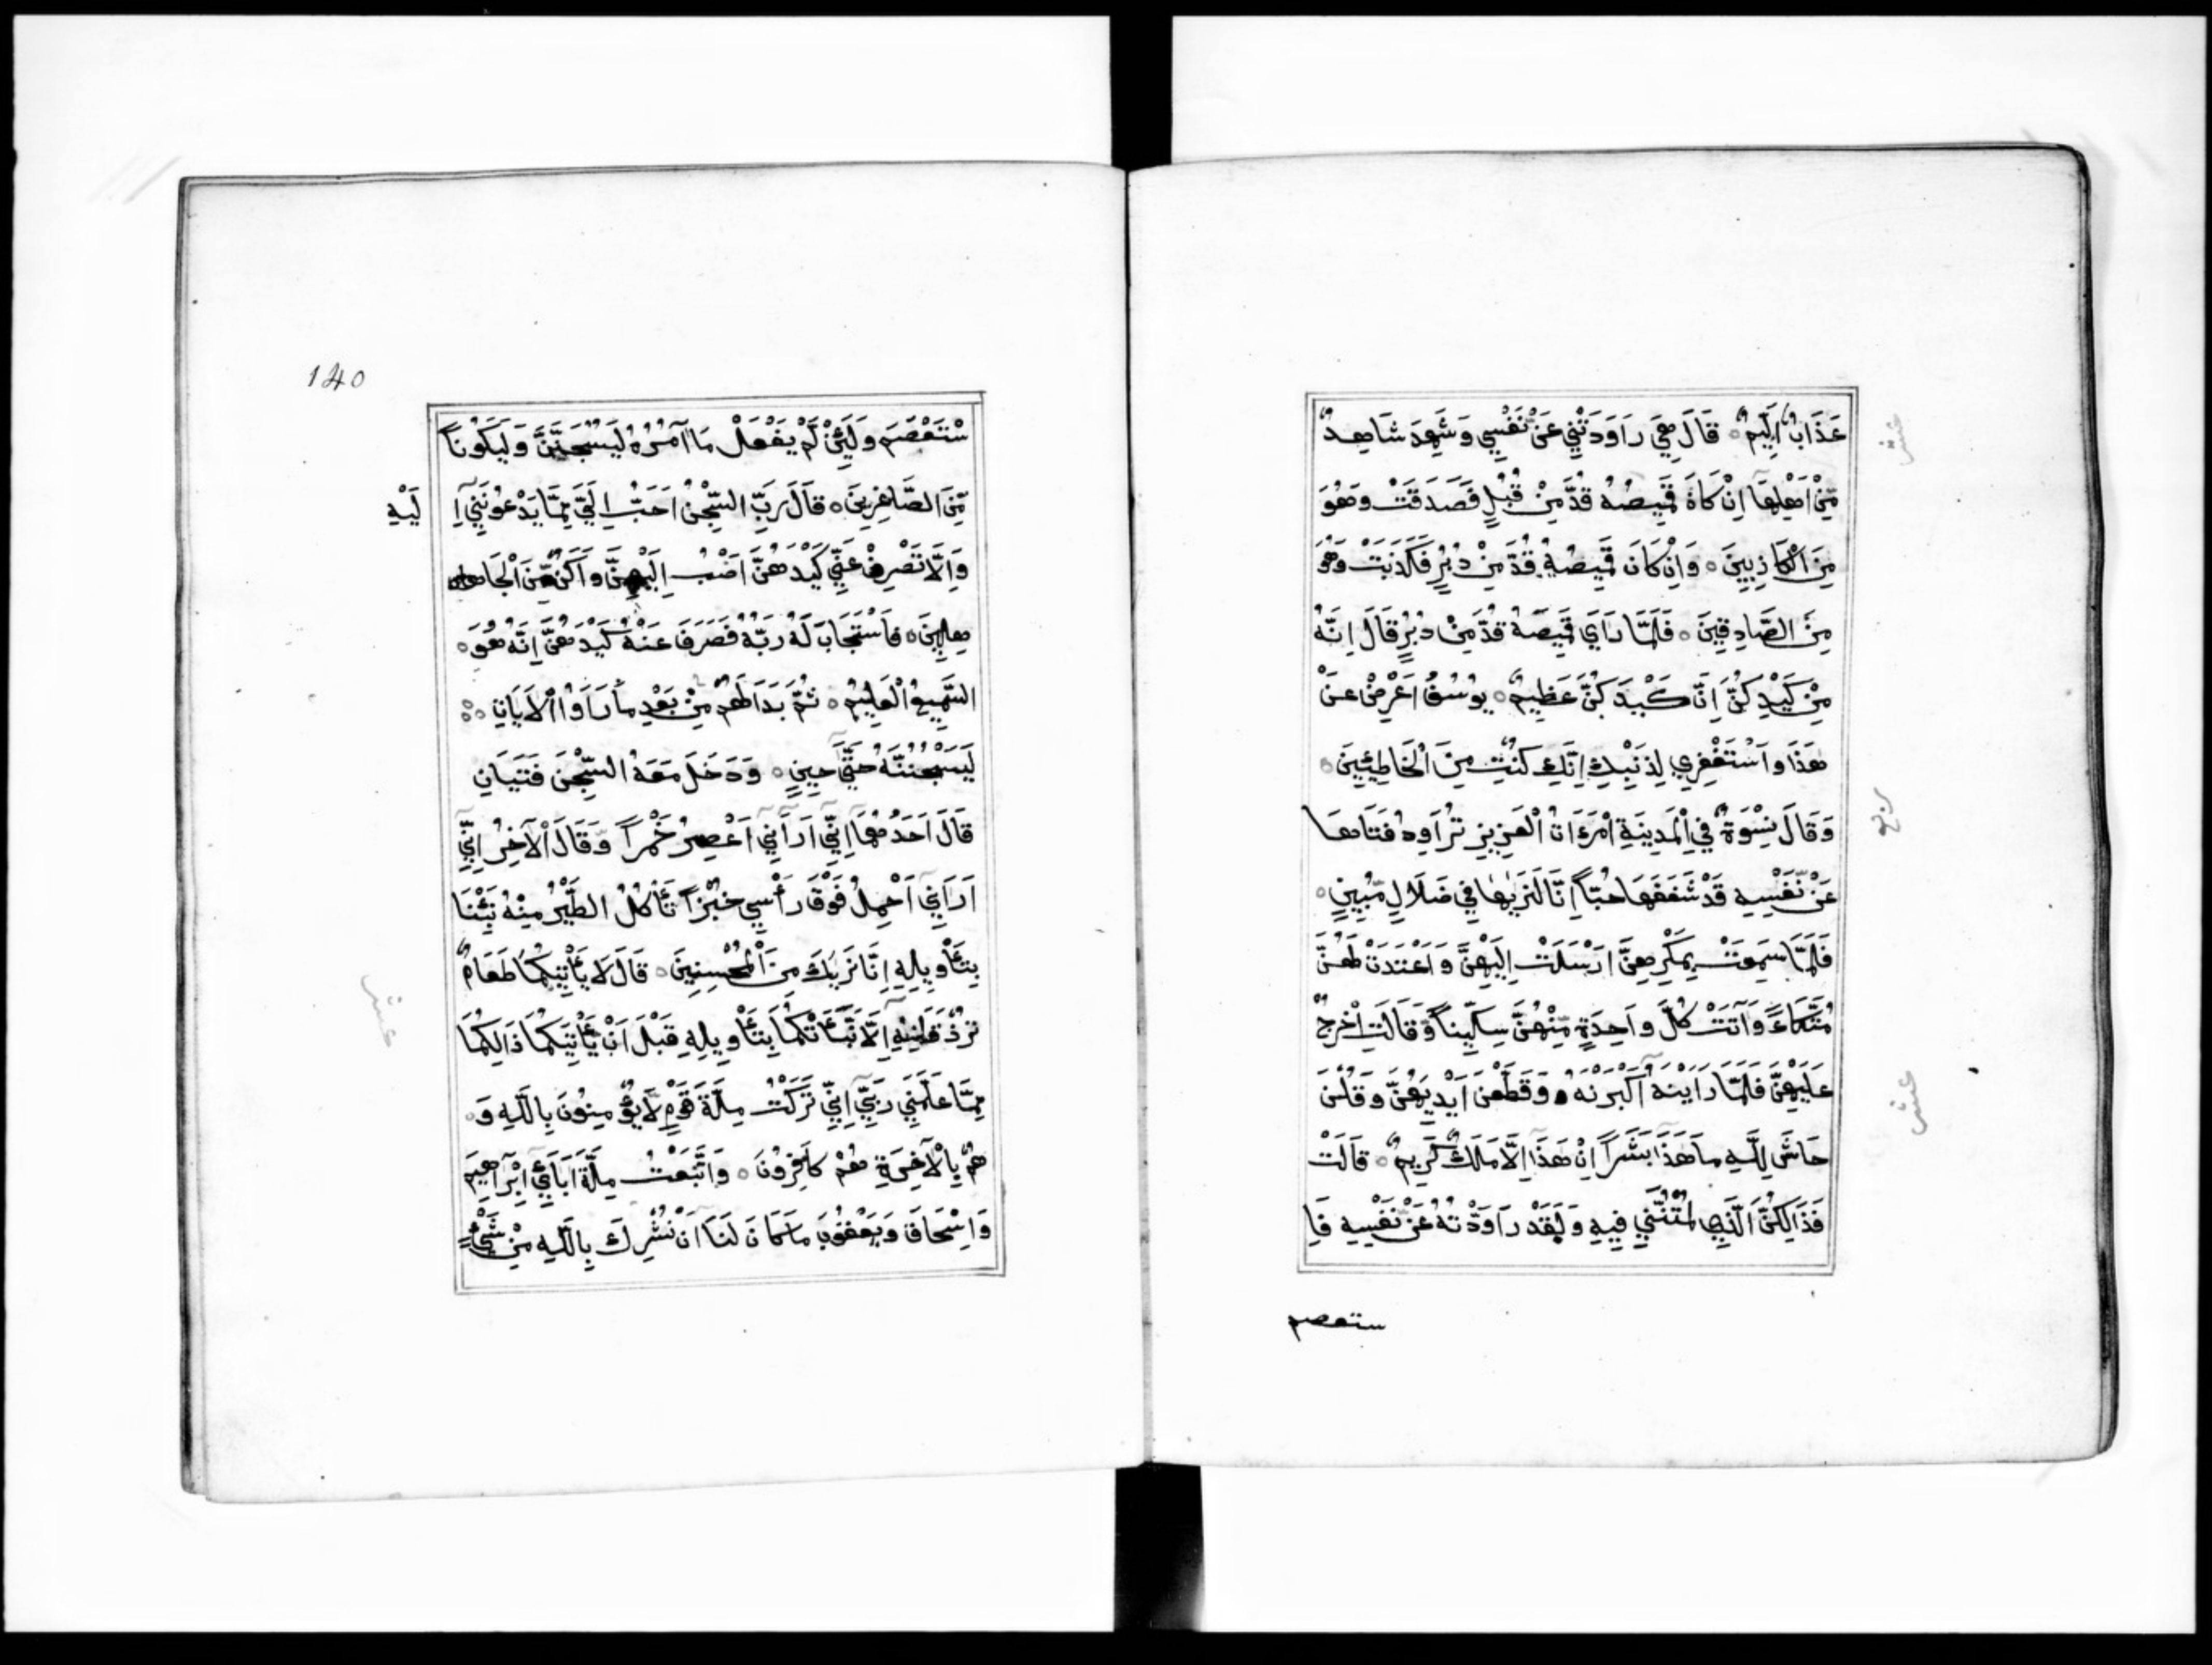 عَذَابٌ اَلِيْمٌ ○ قَالَ هِيَ رَاوَدَتْنِي عَنْ نَفْسِي وَشَهِدَ شَاهِدٌ
مِّنْ اَهْلِهَآ اِنْ كَانَ قَمِيصُهُ قُدَّ مِنْ قُبُلٍ فَصَدَقَتْ وَهُوَ
مِنَ الْكَاذِبِينَ ○ وَاِنْ كَانَ قَمِيصُهُ قُدَّ مِنْ دُبُرٍ فَكَذَبَتْ وَهُوَ
مِنَ الصَّادِقِينَ ○ فَلَمَّا رَاَى قَمِيصَهُ قُدَّ مِنْ دُبُرٍ قَالَ اِنَّهُ
مِنْ كَيْدِكُنَّ اِنَّ كَيْدَكُنَّ عَظِيمٌ ○ يُوسُفُ اَعْرِضْ عَنْ
هَذَا وَاسْتَغْفِرِي لِذَنْبِكِ اِنَّكِ كُنْتِ مِنَ الْخَاطِئِينَ ○
وَقَالَ نِسْوَةٌ فِي الْمَدِينَةِ امْرَاَتُ الْعَزِيزِ تُرَاوِدُ فَتَاهَا
عَنْ نَّفْسِهِ قَدْ شَغَفَهَا حُبّاً اِنَّا لَنَرٰيهَا فِي ضَلَالٍ مُّبِينٍ ○
فَلَمَّا سَمِعَتْ بِمَكْرِهِنَّ اَرْسَلَتْ اِلَيْهِنَّ وَاَعْتَدَتْ لَهُنَّ
مُتَّكَاءً وَآتَتْ كُلَّ وَاحِدَةٍ مِّنْهُنَّ سِكِّيناً وَّقَالَتِ اخْرُجْ
عَلَيْهِنَّ فَلَمَّا رَاَيْنَهُ اَكْبَرْنَهُ وَقَطَّعْنَ اَيْدِيَهُنَّ وَقُلْنَ
حَاشَ لِلَّهِ مَا هَذَا بَشَراً اِنْ هَذَا اِلَّا مَلَكٌ كَرِيمٌ ○ قَالَتْ
فَذَالِكُنَّ الَّذِي لُمْتُنَّنِي فِيهِ وَلَقَدْ رَاوَدْتُهُ عَنْ نَفْسِهِ فَا
ستعصم
عشر
ربع
عشر
140
سْتَعْصَمَ وَلَئِنْ لَّمْ يَفْعَلْ مَا آمُرُهُ لَيُسْجَنَنَّ وَلَيَكُوناً
مِّنَ الصَّاغِرِينَ ○ قَالَ رَبِّ السِّجْنُ اَحَبُّ اِلَيَّ مِمَّا يَدْعُونَنِي اِ
لَيْهِ
وَاِلَّا تَصْرِفْ عَنِّي كَيْدَهُنَّ اَصْبُ اِلَيْهِنَّ وَاَكُنْ مِّنَ الْجَا
هِلِينَ ○ فَاسْتَجَابَ لَهُ رَبُّهُ فَصَرَفَ عَنْهُ كَيْدَهُنَّ اِنَّهُ هُوَ ○
السَّمِيعُ الْعَلِيمُ ○ ثُمَّ بَدَا لَهُمْ مِّنْ بَعْدِ مَا رَاَوُا الْاَيَاتِ ○○
لَيَسْجُنُنَّهُ حَتَّى حِينٍ ○ وَدَخَلَ مَعَهُ السِّجْنَ فَتَيَانِ
قَالَ اَحَدُهُمَآ اِنِّي اَرَانِي اَعْصِرُ خَمْراً وَّقَالَ الْآخَرُ اِنِّي
اَرَانِي اَحْمِلُ فَوْقَ رَأْسِي خُبْزاً تَأْكُلُ الطَّيْرُ مِنْهُ نَبِّئْنَا
بِتَأْوِيلِهِ اِنَّا نَرٰيكَ مِنَ الْمُحْسِنِينَ ○ قَالَ لَا يَأْتِيكُمَا طَعَامٌ
تُرْزَقَانِهِ اِلَّا نَبَّأْتُكُمَا بِتَأْوِيلِهِ قَبْلَ اَنْ يَّأْتِيَكُمَا ذَالِكُمَا
مِمَّا عَلَّمَنِي رَبِّي اِنِّي تَرَكْتُ مِلَّةَ قَوْمٍ لَّا يُؤْمِنُونَ بِاللَّهِ وَ○
هُمْ بِالْآخِرَةِ هُمْ كَافِرُونَ ○ وَاتَّبَعْتُ مِلَّةَ اَبَائِي اِبْرَاهِيمَ
وَاِسْحَاقَ وَيَعْقُوبَ مَا كَانَ لَنَا اَنْ نُشْرِكَ بِاللَّهِ مِنْ شَيْءٍ
عشر